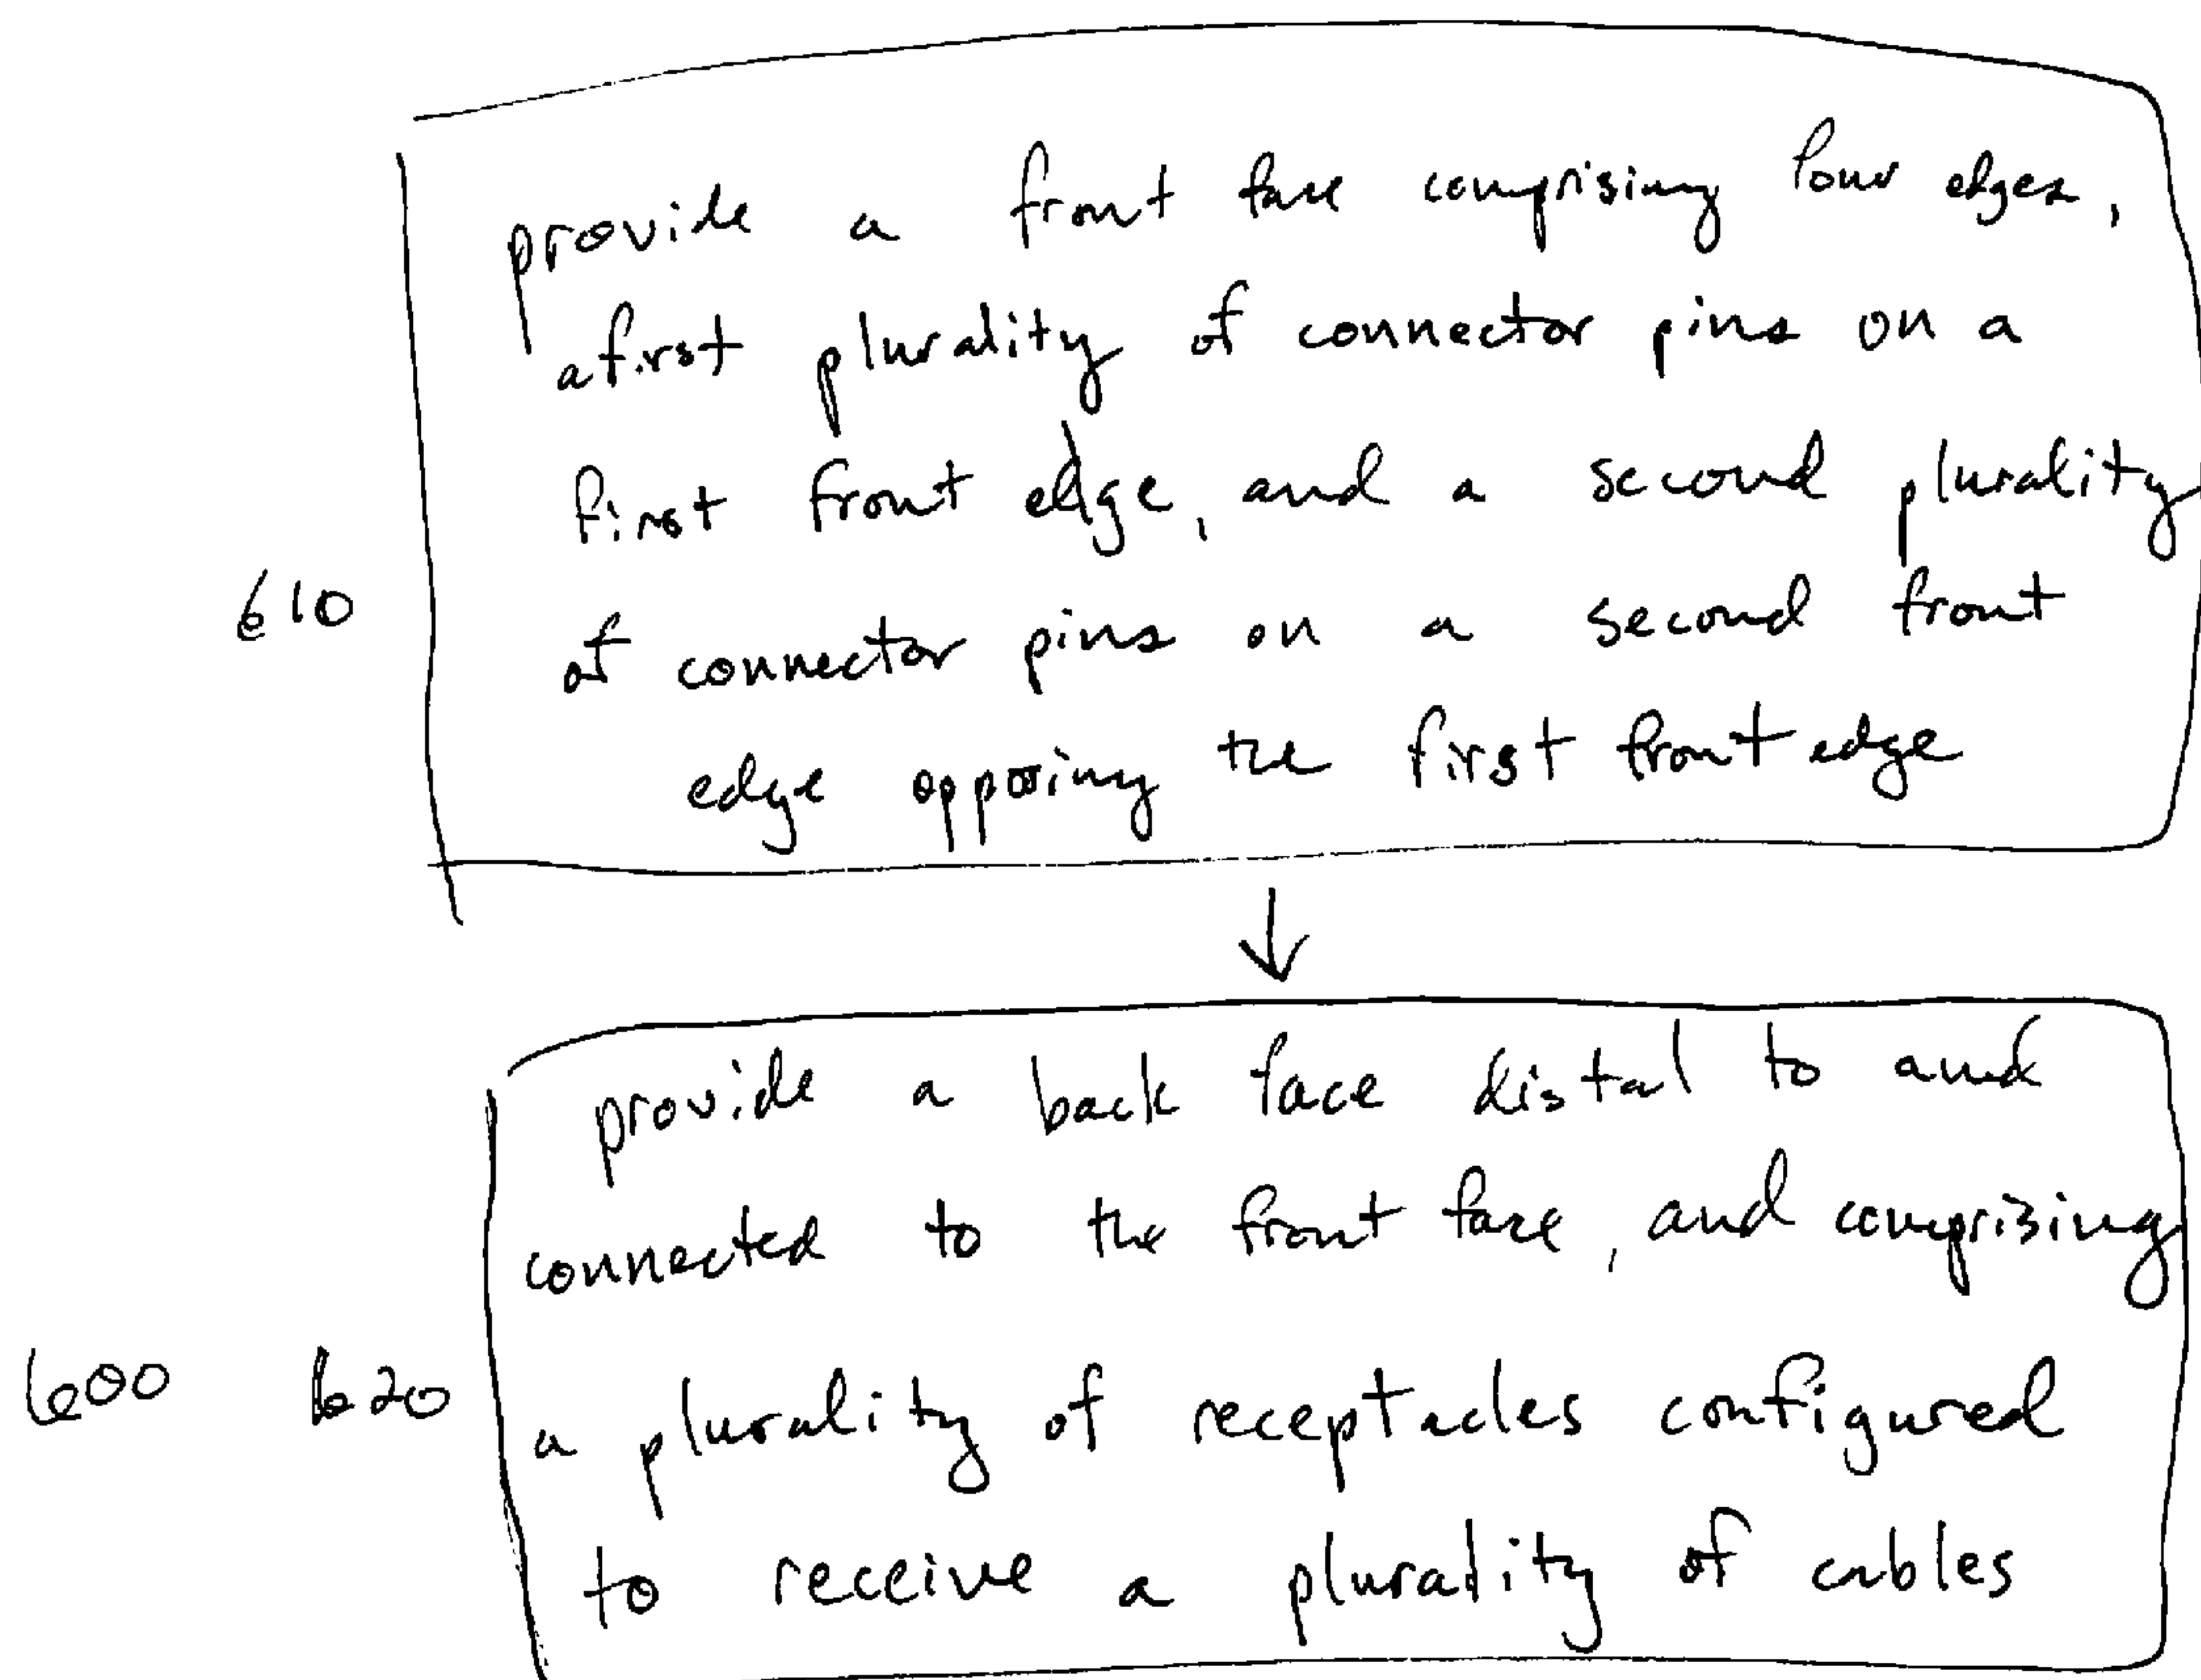 provide a front face comprising four edges,
a first plurality of connector pins on a
first front edge, and a second plurality
610
of connector pins on a second front
edge opposing the first front edge
provide a back face distal to and
connected to the front face, and comprising
600 620
a plurality of receptacles configured
to receive a plurality of cables